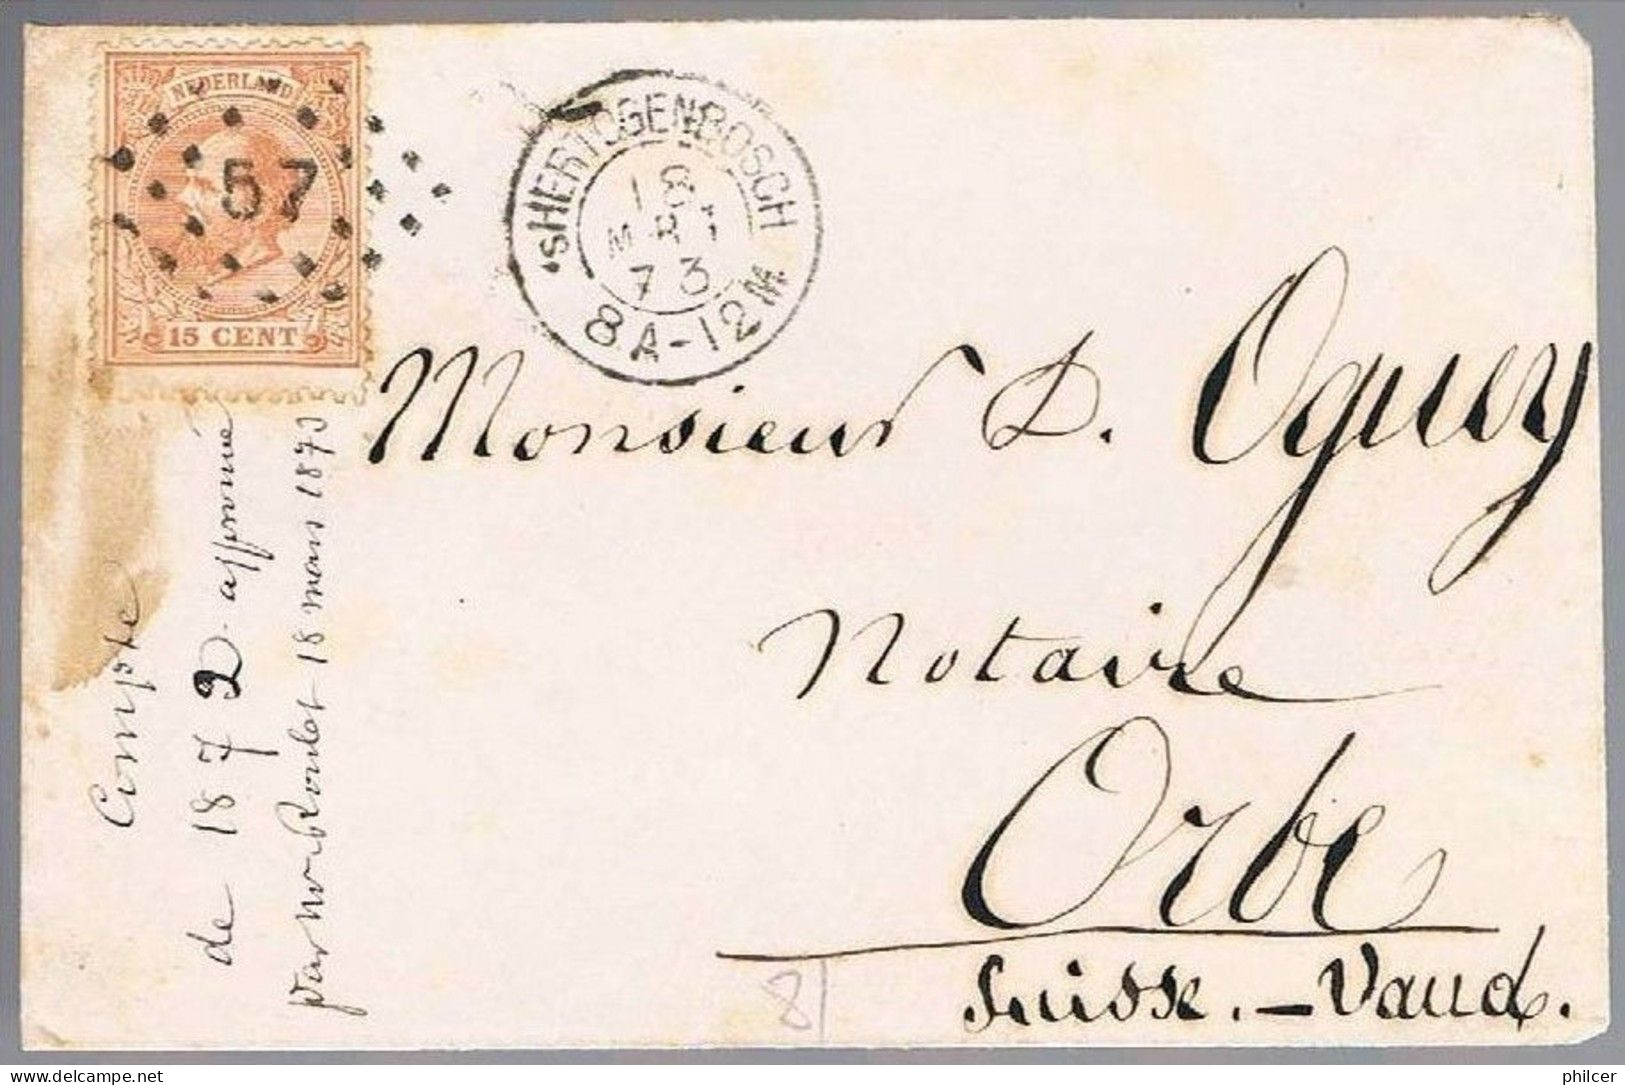 NEDERLAND
57
15 CENT
'SHERTOGENBOSCH
18
MRT
73
8A-12M
Monsieur D. Oguey
Notaire
Orbe
Suisse.-Vaud.
Compte
de 1872 approuvé
par Mr Roulet 18 mars 1873
81
philcer